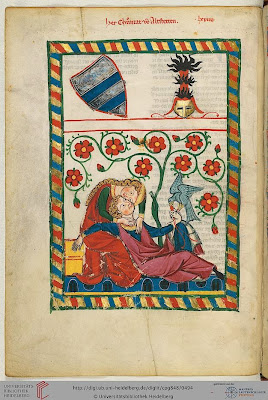 Her Chůnrat vō Altstetten.
UNIVERSITÄTS-
BIBLIOTHEK
HEIDELBERG
http://digi.ub.uni-heidelberg.de/diglit/cpg848/0494
© Universitätsbibliothek Heidelberg